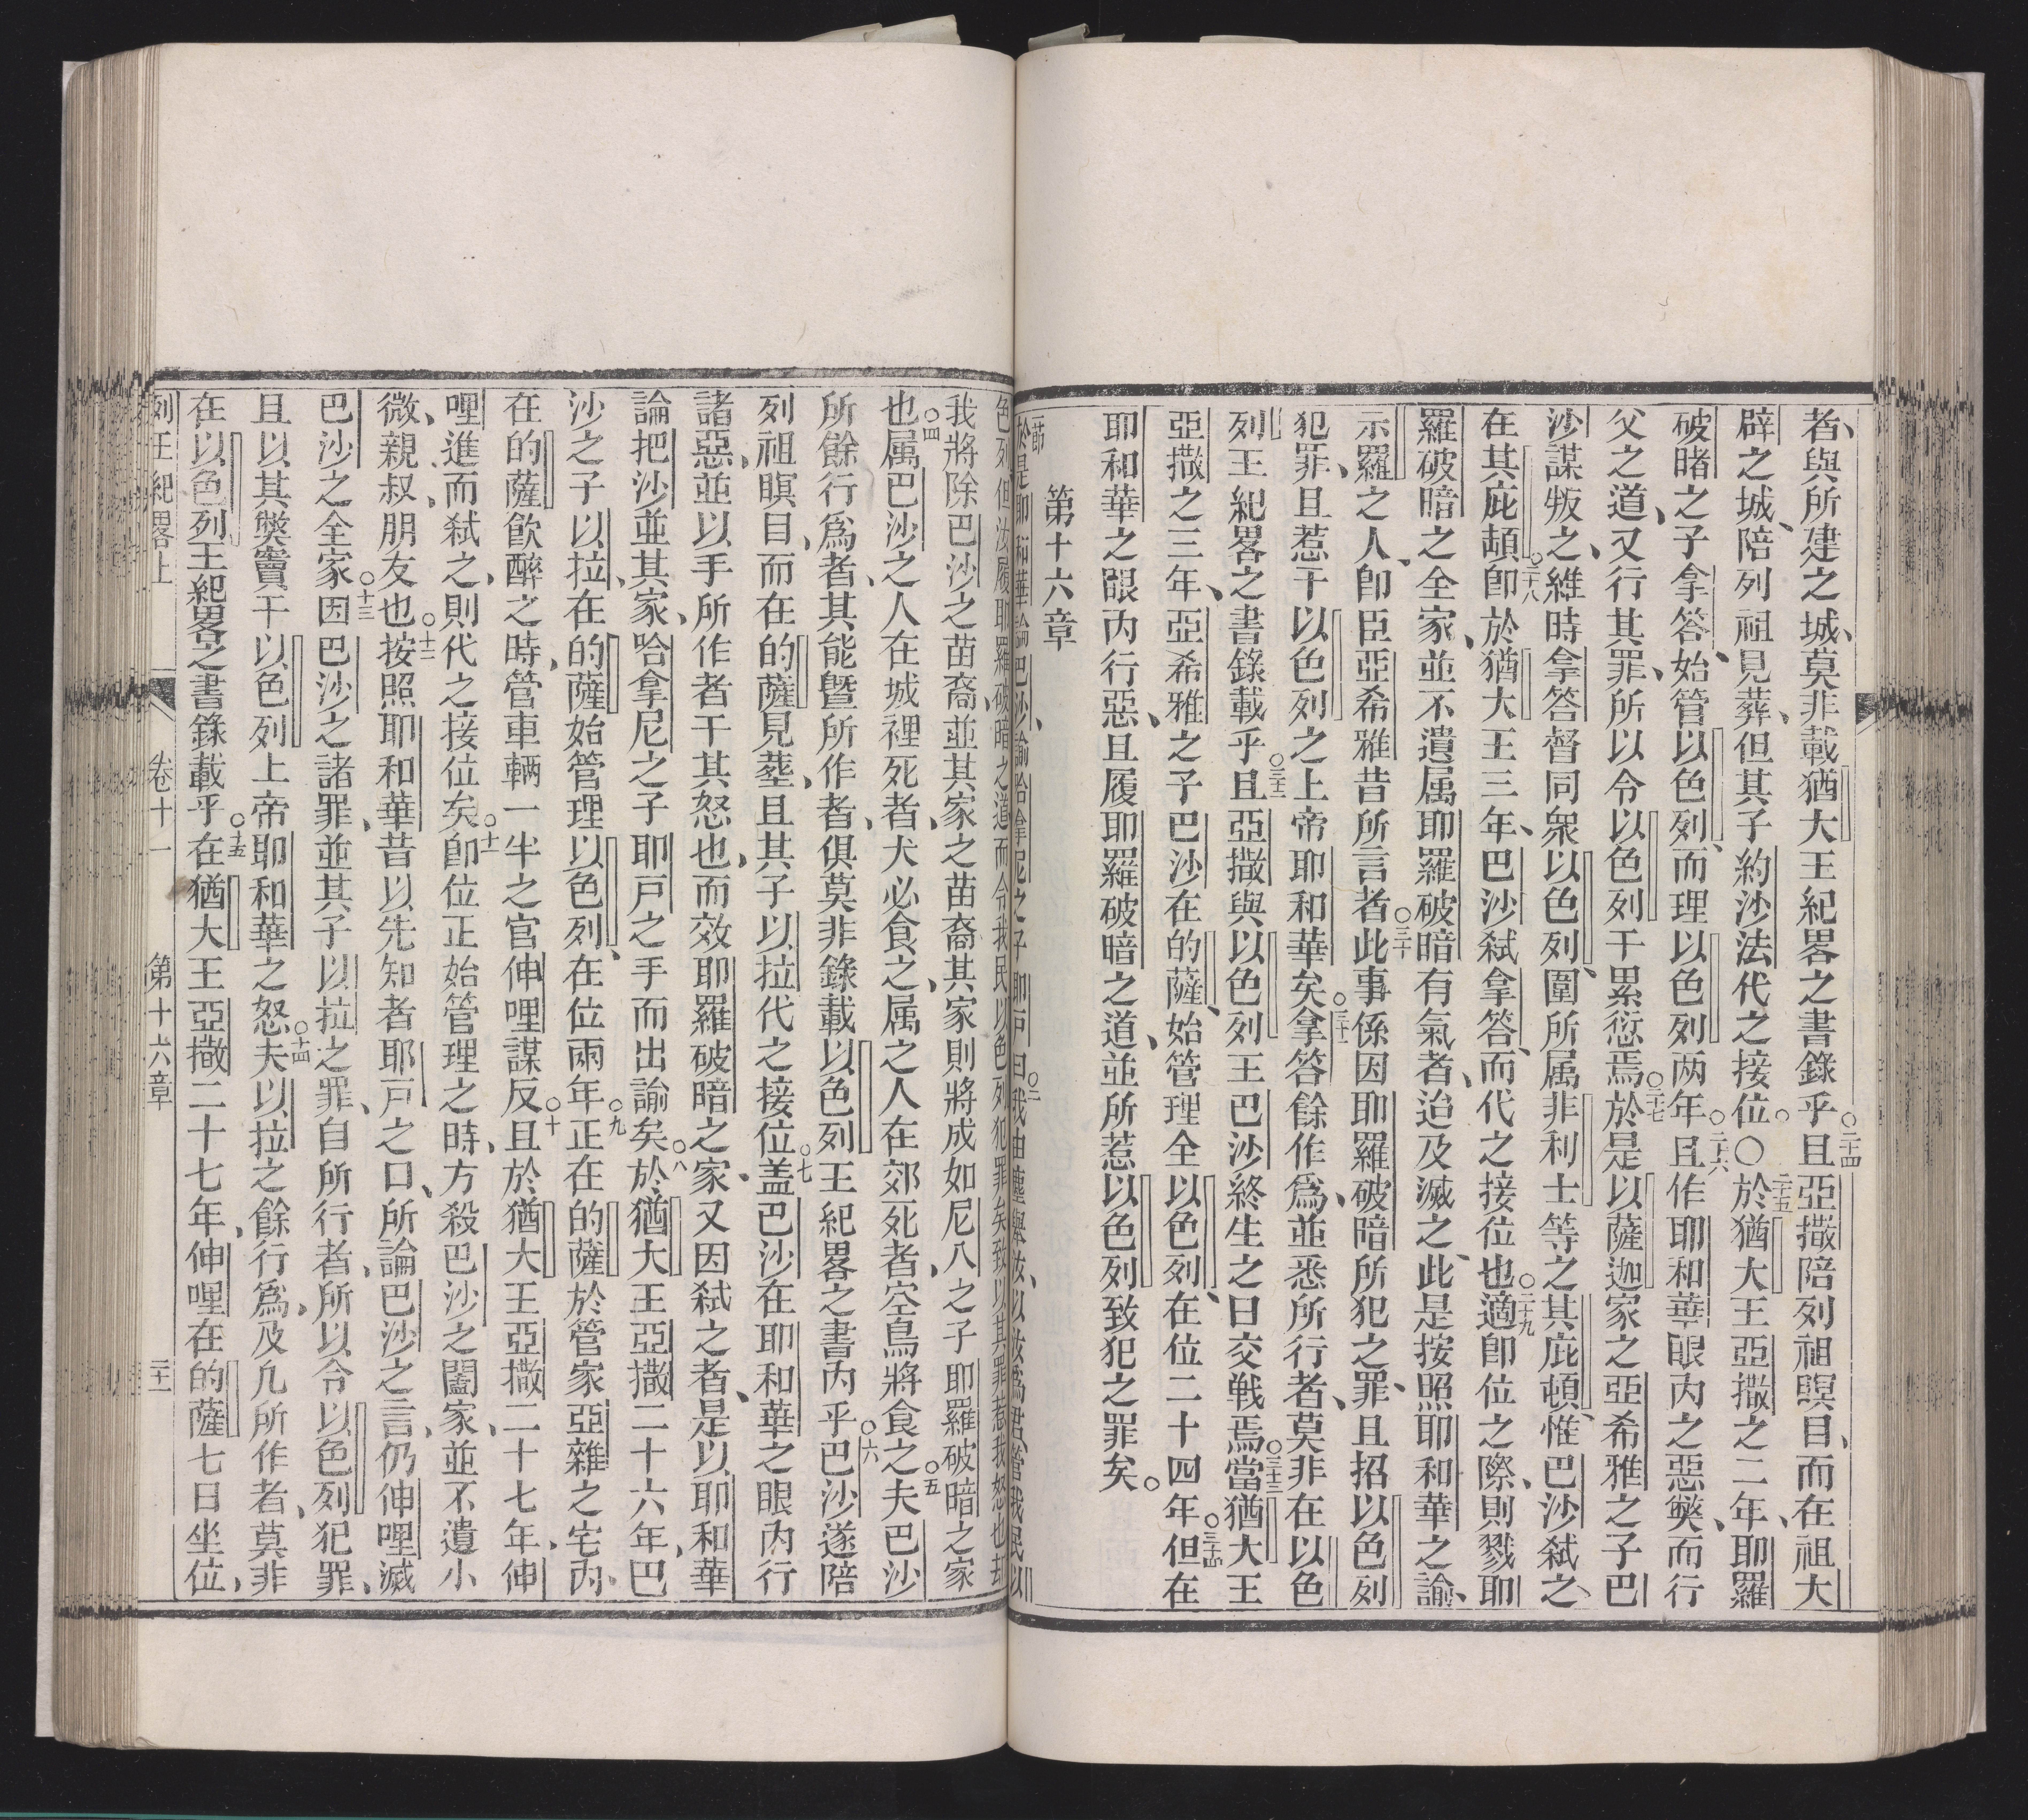 者、與所建之城、莫非載猶大王紀畧之書錄乎。○二十四且亞撒陪列祖瞑目、而在祖大
辟之城、陪列祖見葬、但其子約沙法代之接位。○二十五於猶大王亞撒之二年、耶羅
破暗之子拿答、始管以色列、而理以色列两年。○二十六且作耶和華眼內之惡獘、而行
父之道、又行其罪、所以令以色列干累愆焉。○二十七於是以薩迦家之亞希雅之子巴
沙謀叛之、維時拿答督同衆以色列、圍所属非利士等之其庇頓、惟巴沙弒之
在其庇頓。○二十八卽於猶大王三年、巴沙弒拿答、而代之接位也。○二十九適卽位之際、則戮耶
羅破暗之全家、並不遺属耶羅破暗有氣者、迨及滅之、此是按照耶和華之諭、
示羅之人、卽臣亞希雅昔所言者。○三十此事係因耶羅破暗所犯之罪、且招以色列
犯罪、且惹干以色列之上帝耶和華矣。○三十一拿答餘作爲、並悉所行者、莫非在以色
列王紀畧之書錄載乎。○三十二且亞撒與以色列王巴沙終生之日交戰焉。○三十三當猶大王
亞撒之三年、亞希雅之子巴沙在的薩、始管理全以色列、在位二十四年。○三十四但在
耶和華之眼內行惡、且履耶羅破暗之道、並所惹以色列致犯之罪矣。
第十六章
節於是耶和華論巴沙、諭哈拿尼之子耶戸曰、○二我由塵舉汝、以汝爲君、管我民以
色列、但汝履耶羅破暗之道、而令我民以色列犯罪矣、致以其罪惹我怒也、○三却
我將除巴沙之苗裔、並其家之苗裔、其家則將成如尼八之子耶羅破暗之家
也。○四属巴沙之人在城裡死者、犬必食之、属之人在郊死者、空鳥將食之。○五夫巴沙
所餘行爲者、其能曁所作者、俱莫非錄載以色列王紀畧之書內乎。○六巴沙遂陪
列祖瞑目、而在的薩見塟、且其子以拉代之接位。○七盖巴沙在耶和華之眼內行
諸惡、並以手所作者干其怒也、而效耶羅破暗之家、又因弒之者、是以耶和華
論把沙並其家、哈拿尼之子耶戸之手而出諭矣。○八於猶大王亞撒二十六年、巴
沙之子以拉、在的薩始管理以色列、在位兩年。○九正在的薩於管家亞雜之宅內、
在的薩飲醉之時、管車輛一半之官伸哩謀反。○十且於猶大王亞撒二十七年、伸
哩進而弒之、則代之接位矣。○十一卽位正始管理之時、方殺巴沙之闔家、並不遺小
微、親叔、朋友也。○十二按照耶和華昔以先知者耶戸之口、所論巴沙之言、仍伸哩滅
巴沙之全家。○十三因巴沙之諸罪、並其子以拉之罪、自所行者、所以令以色列犯罪、
且以其獘竇干以色列上帝耶和華之怒。○十四夫以拉之餘行爲、及凡所作者、莫非
在以色列王紀畧之書錄載乎。○十五在猶大王亞撒二十七年、伸哩在的薩七日坐位、
列王紀畧上　卷十一　第十六章　二十二